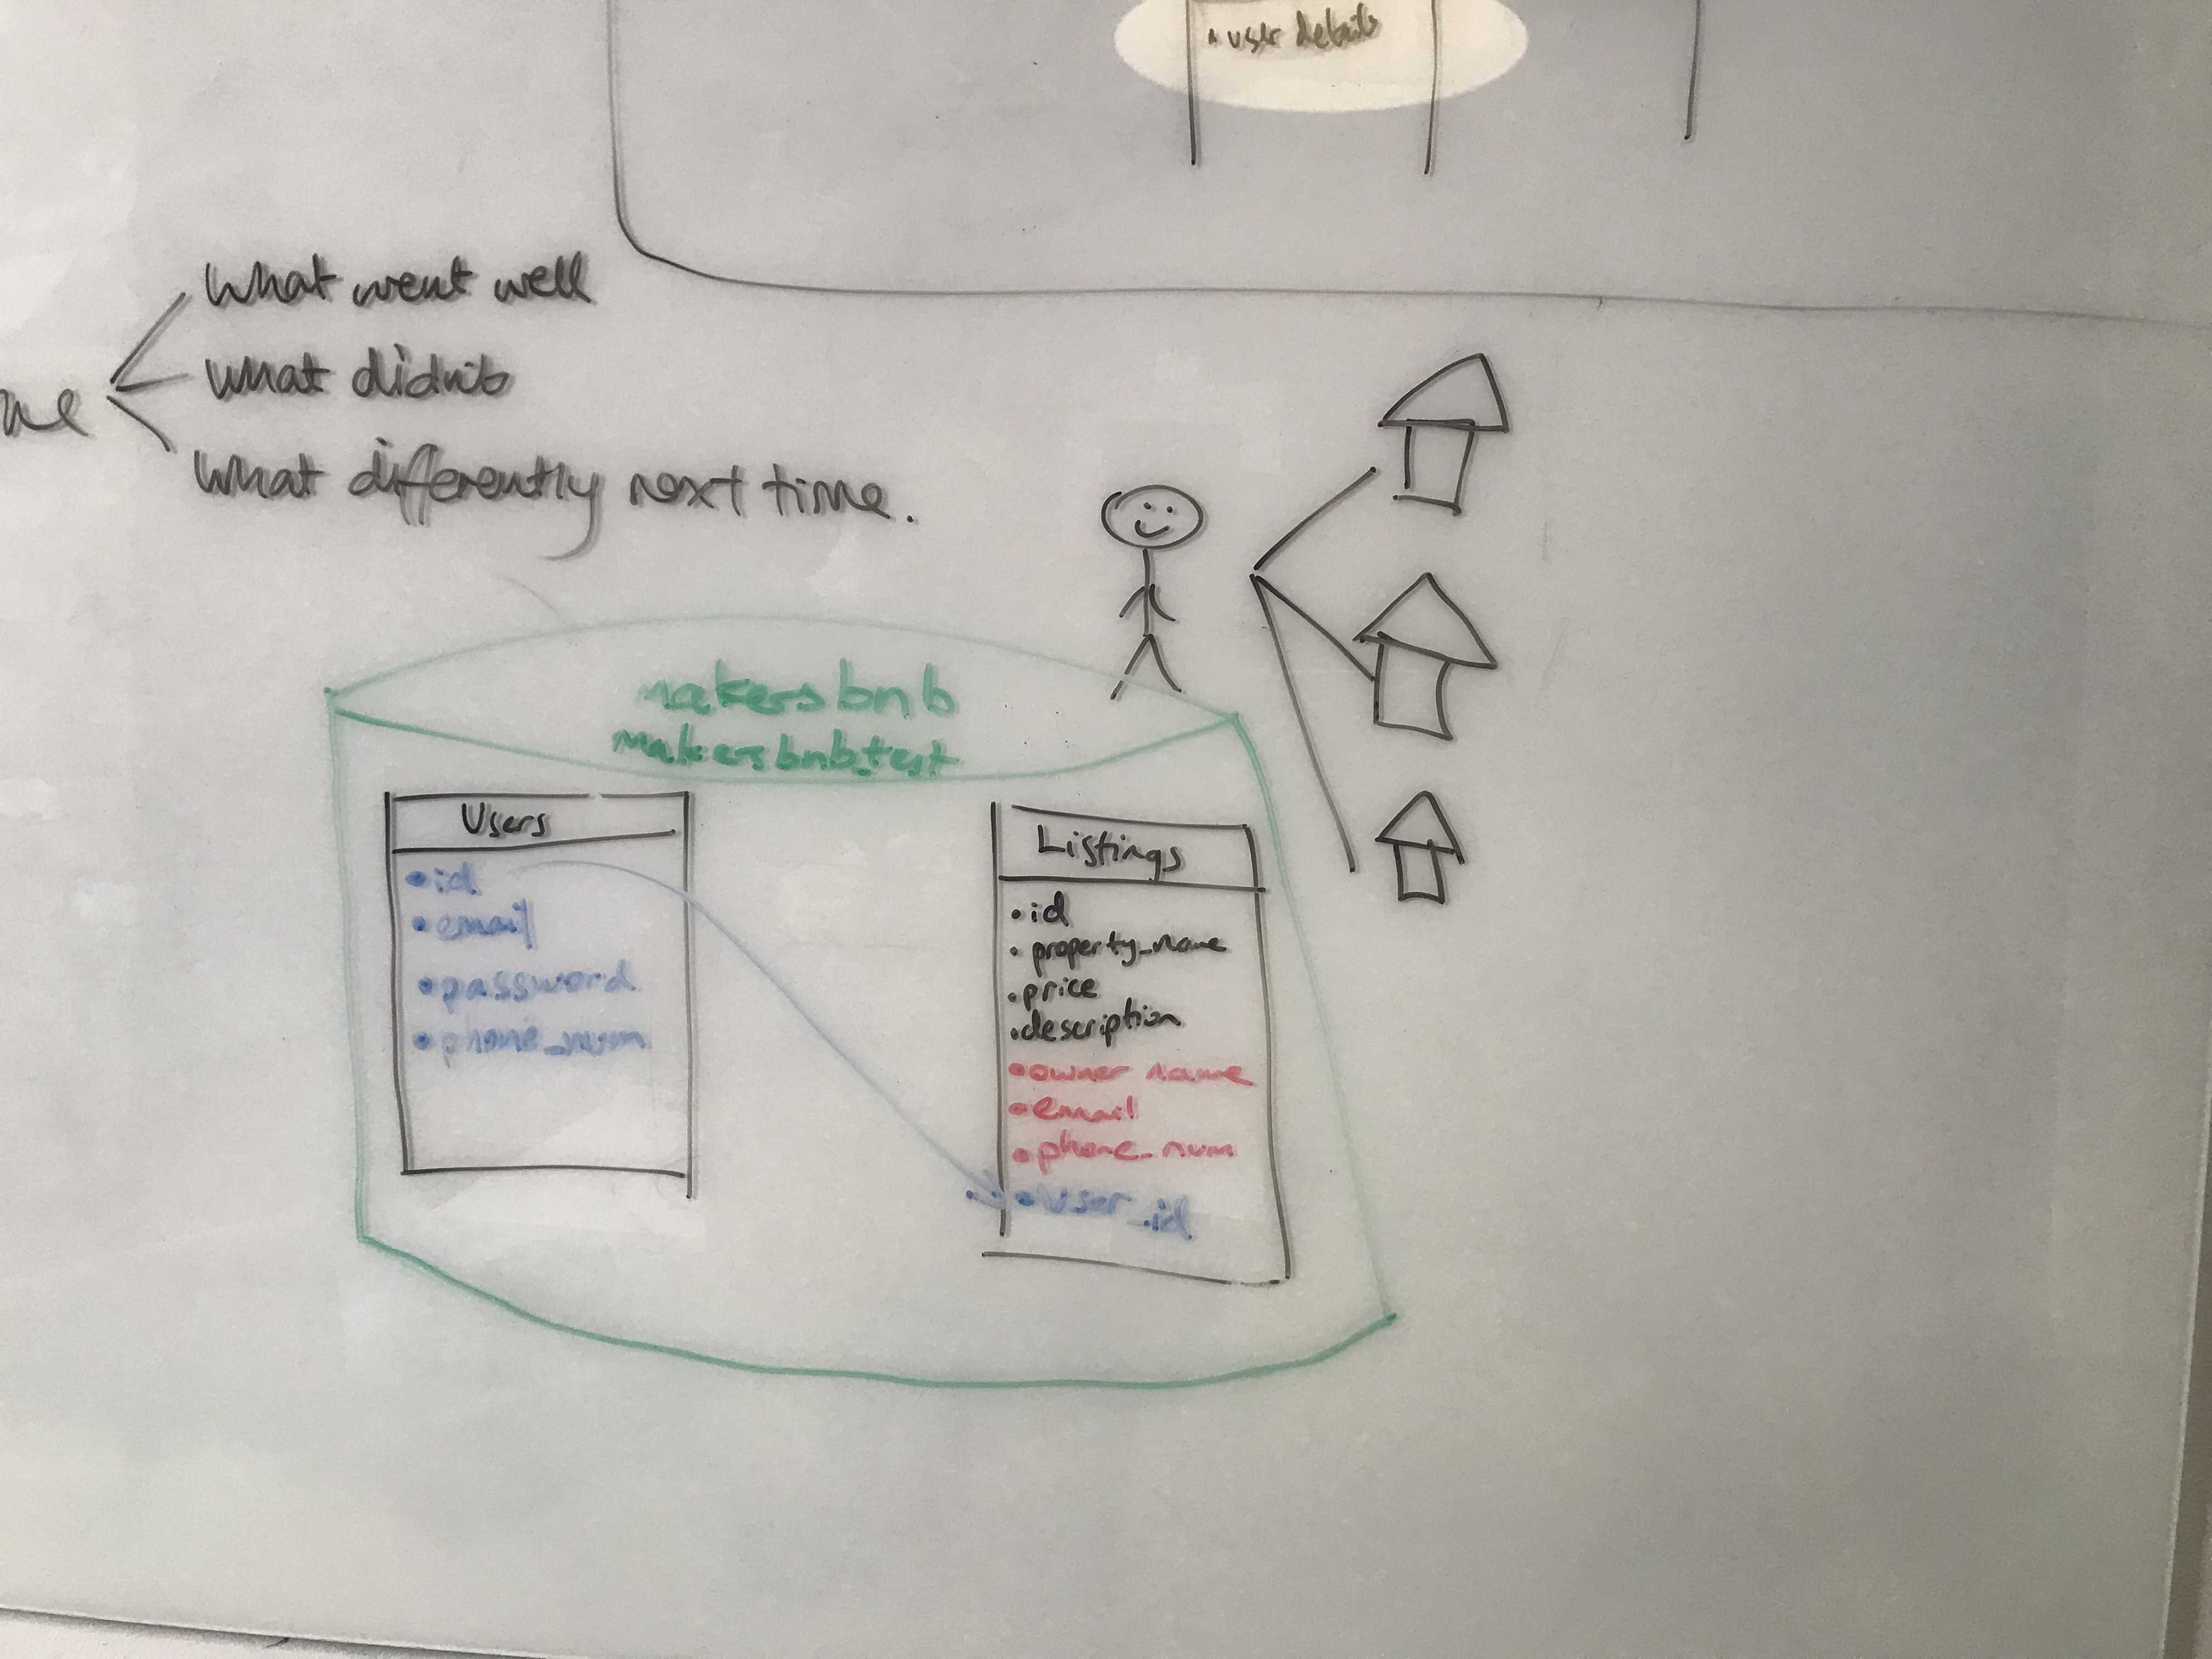 • user details
What went well
What didn't
What differently next time.
makersbnb
makersbnb_test
Users
• id
• email
• password
• phone_num
Listings
• id
• property_name
• price
• description
• owner name
• email
• phone_num
• user_id